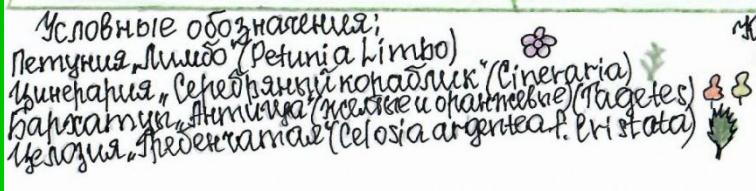 Условные обозначения:
Петуния „Лимбо" (Petunia Limbo)
Цинерария „Серебряный кораблик" (Cineraria)
Бархатцы „Антигуа" (желтые и оранжевые) (Tagetes)
Целозия „Гребенчатая" (Celosia argentea f. cristata)